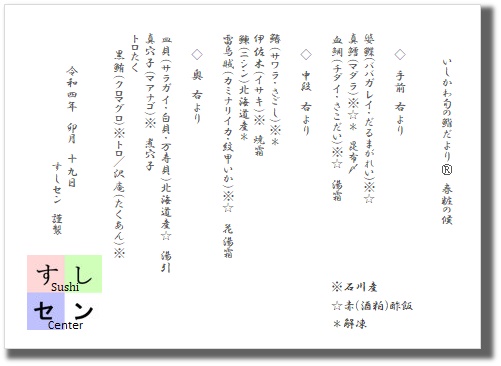 いしかわ旬の鮨だより® 春粧の候
◇ 手前 右より
婆鰈(ババガレイ・だるまがれい)※☆
真鱈(マダラ)※☆* 昆布〆
血鯛(チダイ・さこだい)※☆ 湯霜
◇ 中段 右より
鰆(サワラ・さごし)※*
伊佐木(イサキ)※ 焼霜
鰊(ニシン)北海道産*
雷烏賊(カミナリイカ・紋甲いか)※☆ 花湯霜
◇ 奥 右より
皿貝(サラガイ・白貝・万寿貝)北海道産☆ 湯引
真穴子(マアナゴ)※ 煮穴子
トロたく
黒鮪(クロマグロ)※トロ/沢庵(たくあん)※
令和四年 卯月 十九日
すしセン 謹製
※石川産
☆赤(酒粕)酢飯
*解凍
すし
Sushi
セン
Center